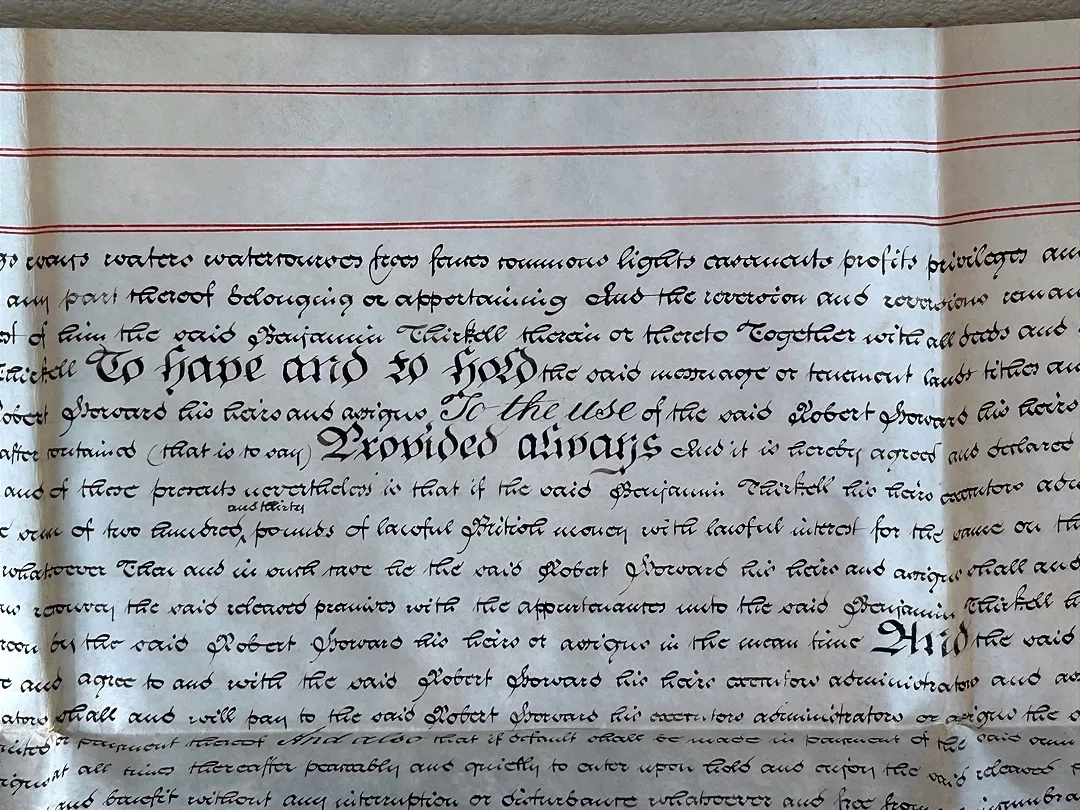 ways waters watercourses trees fences commons lights easements profits privileges
any part thereof belonging or appertaining And the reversion and reversions
of him the said Benjamin Thirkell therein or thereto Together with all deeds and
Thirkell To have and to hold the said messuage or tenement lands tithes
Robert Howard his heirs and assigns To the use of the said Robert Howard his heirs
after contained (that is to say) Provided always And it is hereby agreed and declared
and of these presents nevertheless is that if the said Benjamin Thirkell his heirs executors
and thirty
sum of two hundred ‸ pounds of lawful British money with lawful interest for the same on
whatsoever Then and in such case he the said Robert Howard his heirs and assigns shall and
reconvey the said released premises with the appertenances unto the said Benjamin Thirkell
by the said Robert Howard his heirs or assigns in the mean time And the said
and agree to and with the said Robert Howard his heirs executors administrators and
shall and will pay to the said Robert Howard his executors administrators or assigns the
or payment thereof And also that if default shall be made in payment of the said sum
at all times thereafter peaceably and quietly to enter upon hold and enjoy the said released
and benefit without any interruption or disturbance whatsoever and free from